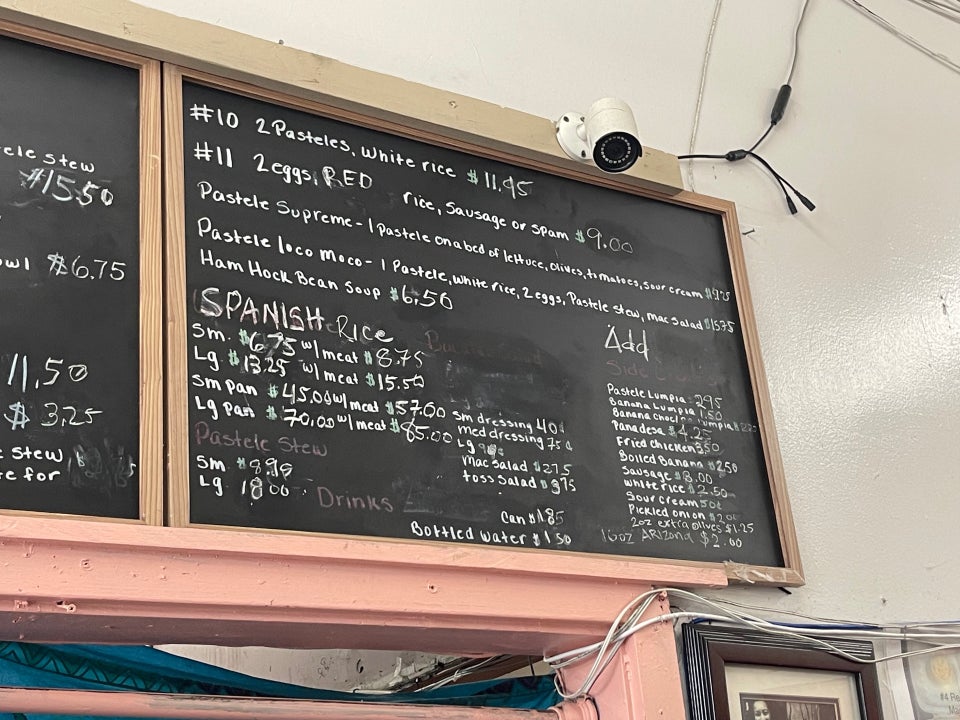 ele stew
#15.50
owl $6.75
11.50
$ 3.25
e stew
e for
#10 2 Pasteles, white rice $11.95
#11 2 eggs, RED rice, sausage or spam $9.00
Pastele Supreme - 1 pastele on a bed of lettuce, olives, tomatoes, sour cream
Pastele loco moco - 1 Pastele, white rice, 2 eggs, Pastele stew, mac salad $15.75
Ham Hock Bean Soup $6.50
SPANISH Rice
Sm. $6.75 w/ meat $8.75
Lg $13.25 w/ meat $15.50
Sm pan $45.00 w/ meat $57.00
Lg pan $70.00 w/ meat $85.00
Pastele Stew
Sm $8.98
Lg 18.00
Sm dressing 40¢
med dressing
Lg
Mac Salad $2.75
toss Salad $3.75
Drinks
Can $1.85
Bottled water $1.50
Add
Side
Pastele Lumpia 2.95
Banana Lumpia 1.50
Banana lumpia
Panadesa $4.25
Fried chicken 3.50
Boiled Banana $2.50
Sausage $3.00
white rice $2.50
Sour cream 50¢
Pickled onion $2.00
2oz extra olives $1.25
16oz ARIZONA $2.00
#4 Re